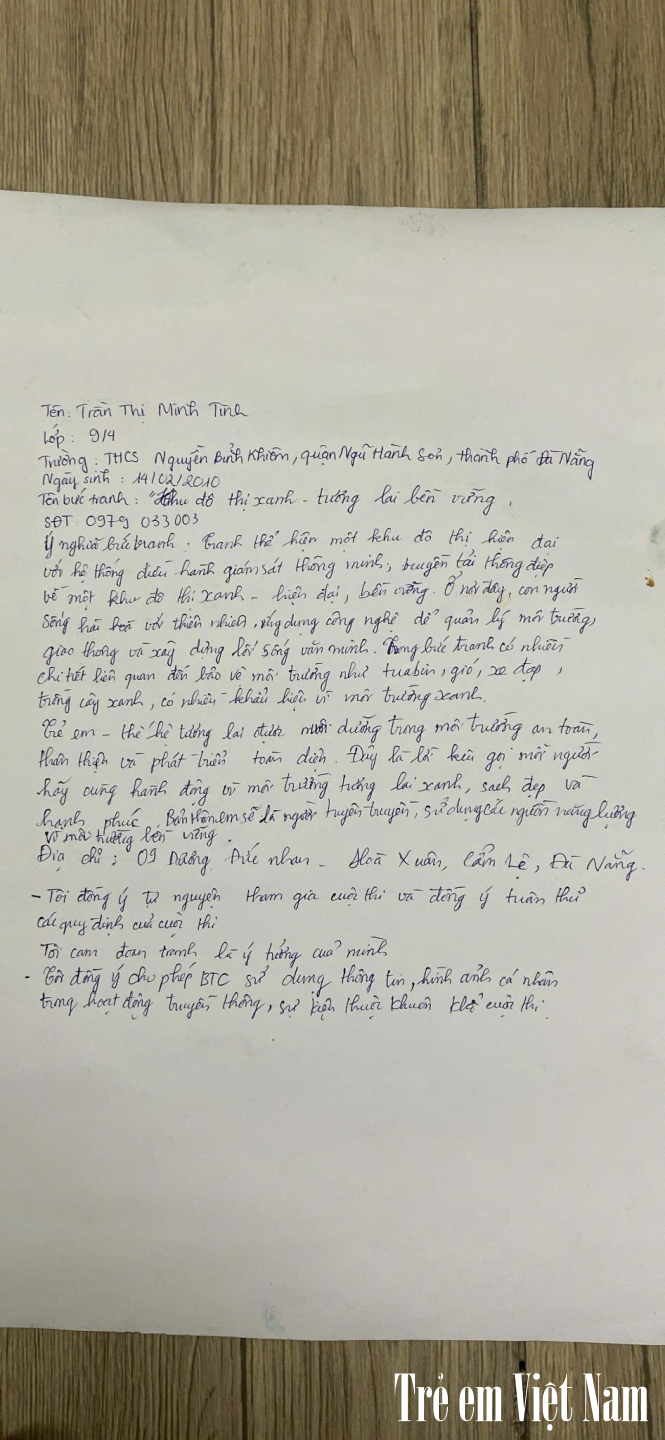 Tên: Trần Thị Minh Tình
Lớp: 9/4
Trường: THCS Nguyễn Bỉnh Khiêm, quận Ngũ Hành Sơn, thành phố Đà Nẵng
Ngày sinh: 14/02/2010
Tên bức tranh: "Khu đô thị xanh - tương lai bền vững.
SĐT: 0979 033003
Ý nghĩa bức tranh. Tranh thể hiện một khu đô thị hiện đại
với hệ thống điều hành giám sát thông minh, truyền tải thông điệp
về một khu đô thị xanh - hiện đại, bền vững. Ở nơi đây, con người
sống hài hoà với thiên nhiên, ứng dụng công nghệ để quản lý môi trường,
giao thông và xây dựng lối sống văn minh. Trong bức tranh có nhiều
chi tiết liên quan đến bảo vệ môi trường như tuabin, gió, xe đạp,
trồng cây xanh, có nhiều khẩu hiệu vì môi trường xanh.
Trẻ em - thế hệ tương lai được nuôi dưỡng trong môi trường an toàn,
thân thiện và phát triển toàn diện. Đây là lời kêu gọi mỗi người
hãy cùng hành động vì môi trường tương lai xanh, sạch đẹp và
hạnh phúc. Bản thân em sẽ là người tuyên truyền, sử dụng các nguồn năng lượng
vì môi trường bền vững.
Địa chỉ: 09 Dương Đức nhan - Hoà Xuân, Cẩm Lệ, Đà Nẵng.
- Tôi đồng ý tự nguyện tham gia cuộc thi và đồng ý tuân thủ
các quy định của cuộc thi
Tôi cam đoan tranh là ý tưởng của mình
- Tôi đồng ý cho phép BTC sử dụng thông tin, hình ảnh cá nhân
trong hoạt động truyền thông, sự kiện thuộc khuôn khổ cuộc thi.
Trẻ em Việt Nam